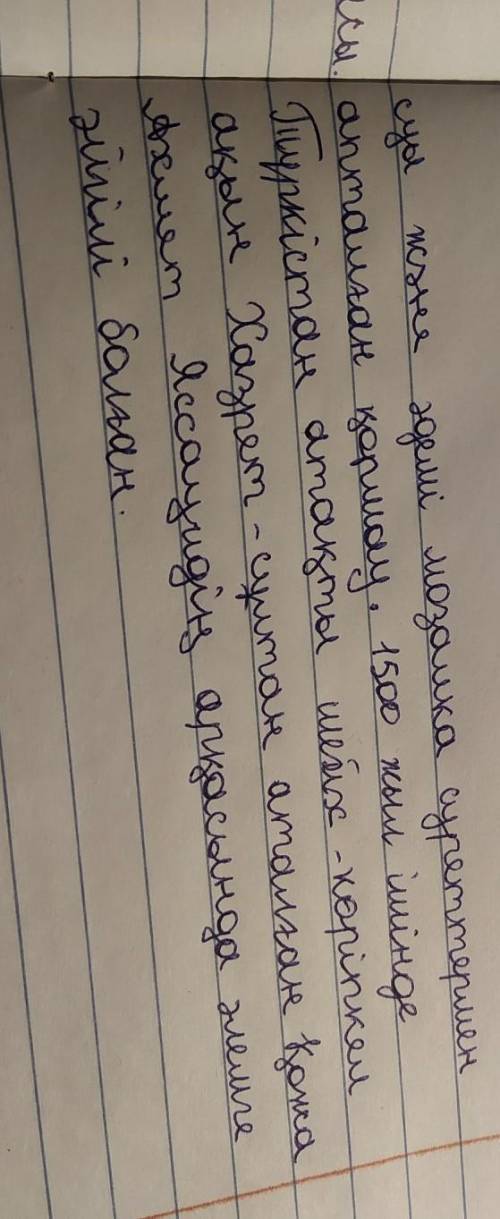 сы.
су және әдемі мозаика суреттермен
апталған қормау. 1500 жыл ішінде
Түркістан атақты шейх-көріпкел
ақын Хазрет-сұлтан аталған Қожа
Ахмет Яссауидің арқасында әлемге
әйгілі болған.